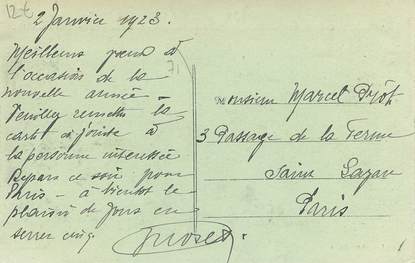 12€
2 Janvier 1923.
Meilleurs vœux à
l'occasion de la
nouvelle année –
Veuillez remettre la
carte ci jointe à
la personne interessée
Repars ce soir pour
Paris – à bientôt le
plaisir de vous en
serrer cinq.
71
Monsieur Marcel
3 Passage de la Ferme
Saint Lazare
Paris